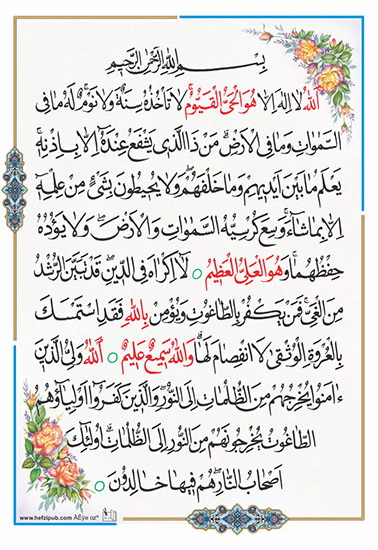 بِسْمِ اللهِ الرَّحْمٰنِ الرَّحِيمِ
اَللهُ لَا اِلٰهَ اِلَّا هُوَ الْحَيُّ الْقَيُّومُ لَا تَأْخُذُهُ سِنَةٌ وَلَا نَوْمٌ لَهُ مَا فِي
السَّمٰوَاتِ وَمَا فِي الْاَرْضِ مَنْ ذَا الَّذِي يَشْفَعُ عِنْدَهُ اِلَّا بِاِذْنِهِ
يَعْلَمُ مَا بَيْنَ اَيْدِيهِمْ وَمَا خَلْفَهُمْ وَلَا يُحِيطُونَ بِشَيْءٍ مِنْ عِلْمِهِ
اِلَّا بِمَا شَاءَ وَسِعَ كُرْسِيُّهُ السَّمٰوَاتِ وَالْاَرْضَ وَلَا يَؤُدُهُ
حِفْظُهُمَا وَهُوَ الْعَلِيُّ الْعَظِيمُ ○ لَا اِكْرَاهَ فِي الدِّينِ قَدْ تَبَيَّنَ الرُّشْدُ
مِنَ الْغَيِّ فَمَنْ يَكْفُرْ بِالطَّاغُوتِ وَيُؤْمِنْ بِاللهِ فَقَدِ اسْتَمْسَكَ
بِالْعُرْوَةِ الْوُثْقٰى لَا انْفِصَامَ لَهَا وَاللهُ سَمِيعٌ عَلِيمٌ ○ اَللهُ وَلِيُّ الَّذِينَ
ءَامَنُوا يُخْرِجُهُمْ مِنَ الظُّلُمَاتِ اِلَى النُّورِ وَالَّذِينَ كَفَرُوا اَوْلِيَاؤُهُمُ
الطَّاغُوتُ يُخْرِجُونَهُمْ مِنَ النُّورِ اِلَى الظُّلُمَاتِ اُولٰئِكَ
اَصْحَابُ النَّارِ هُمْ فِيهَا خَالِدُونَ ○
www.hefzipub.com